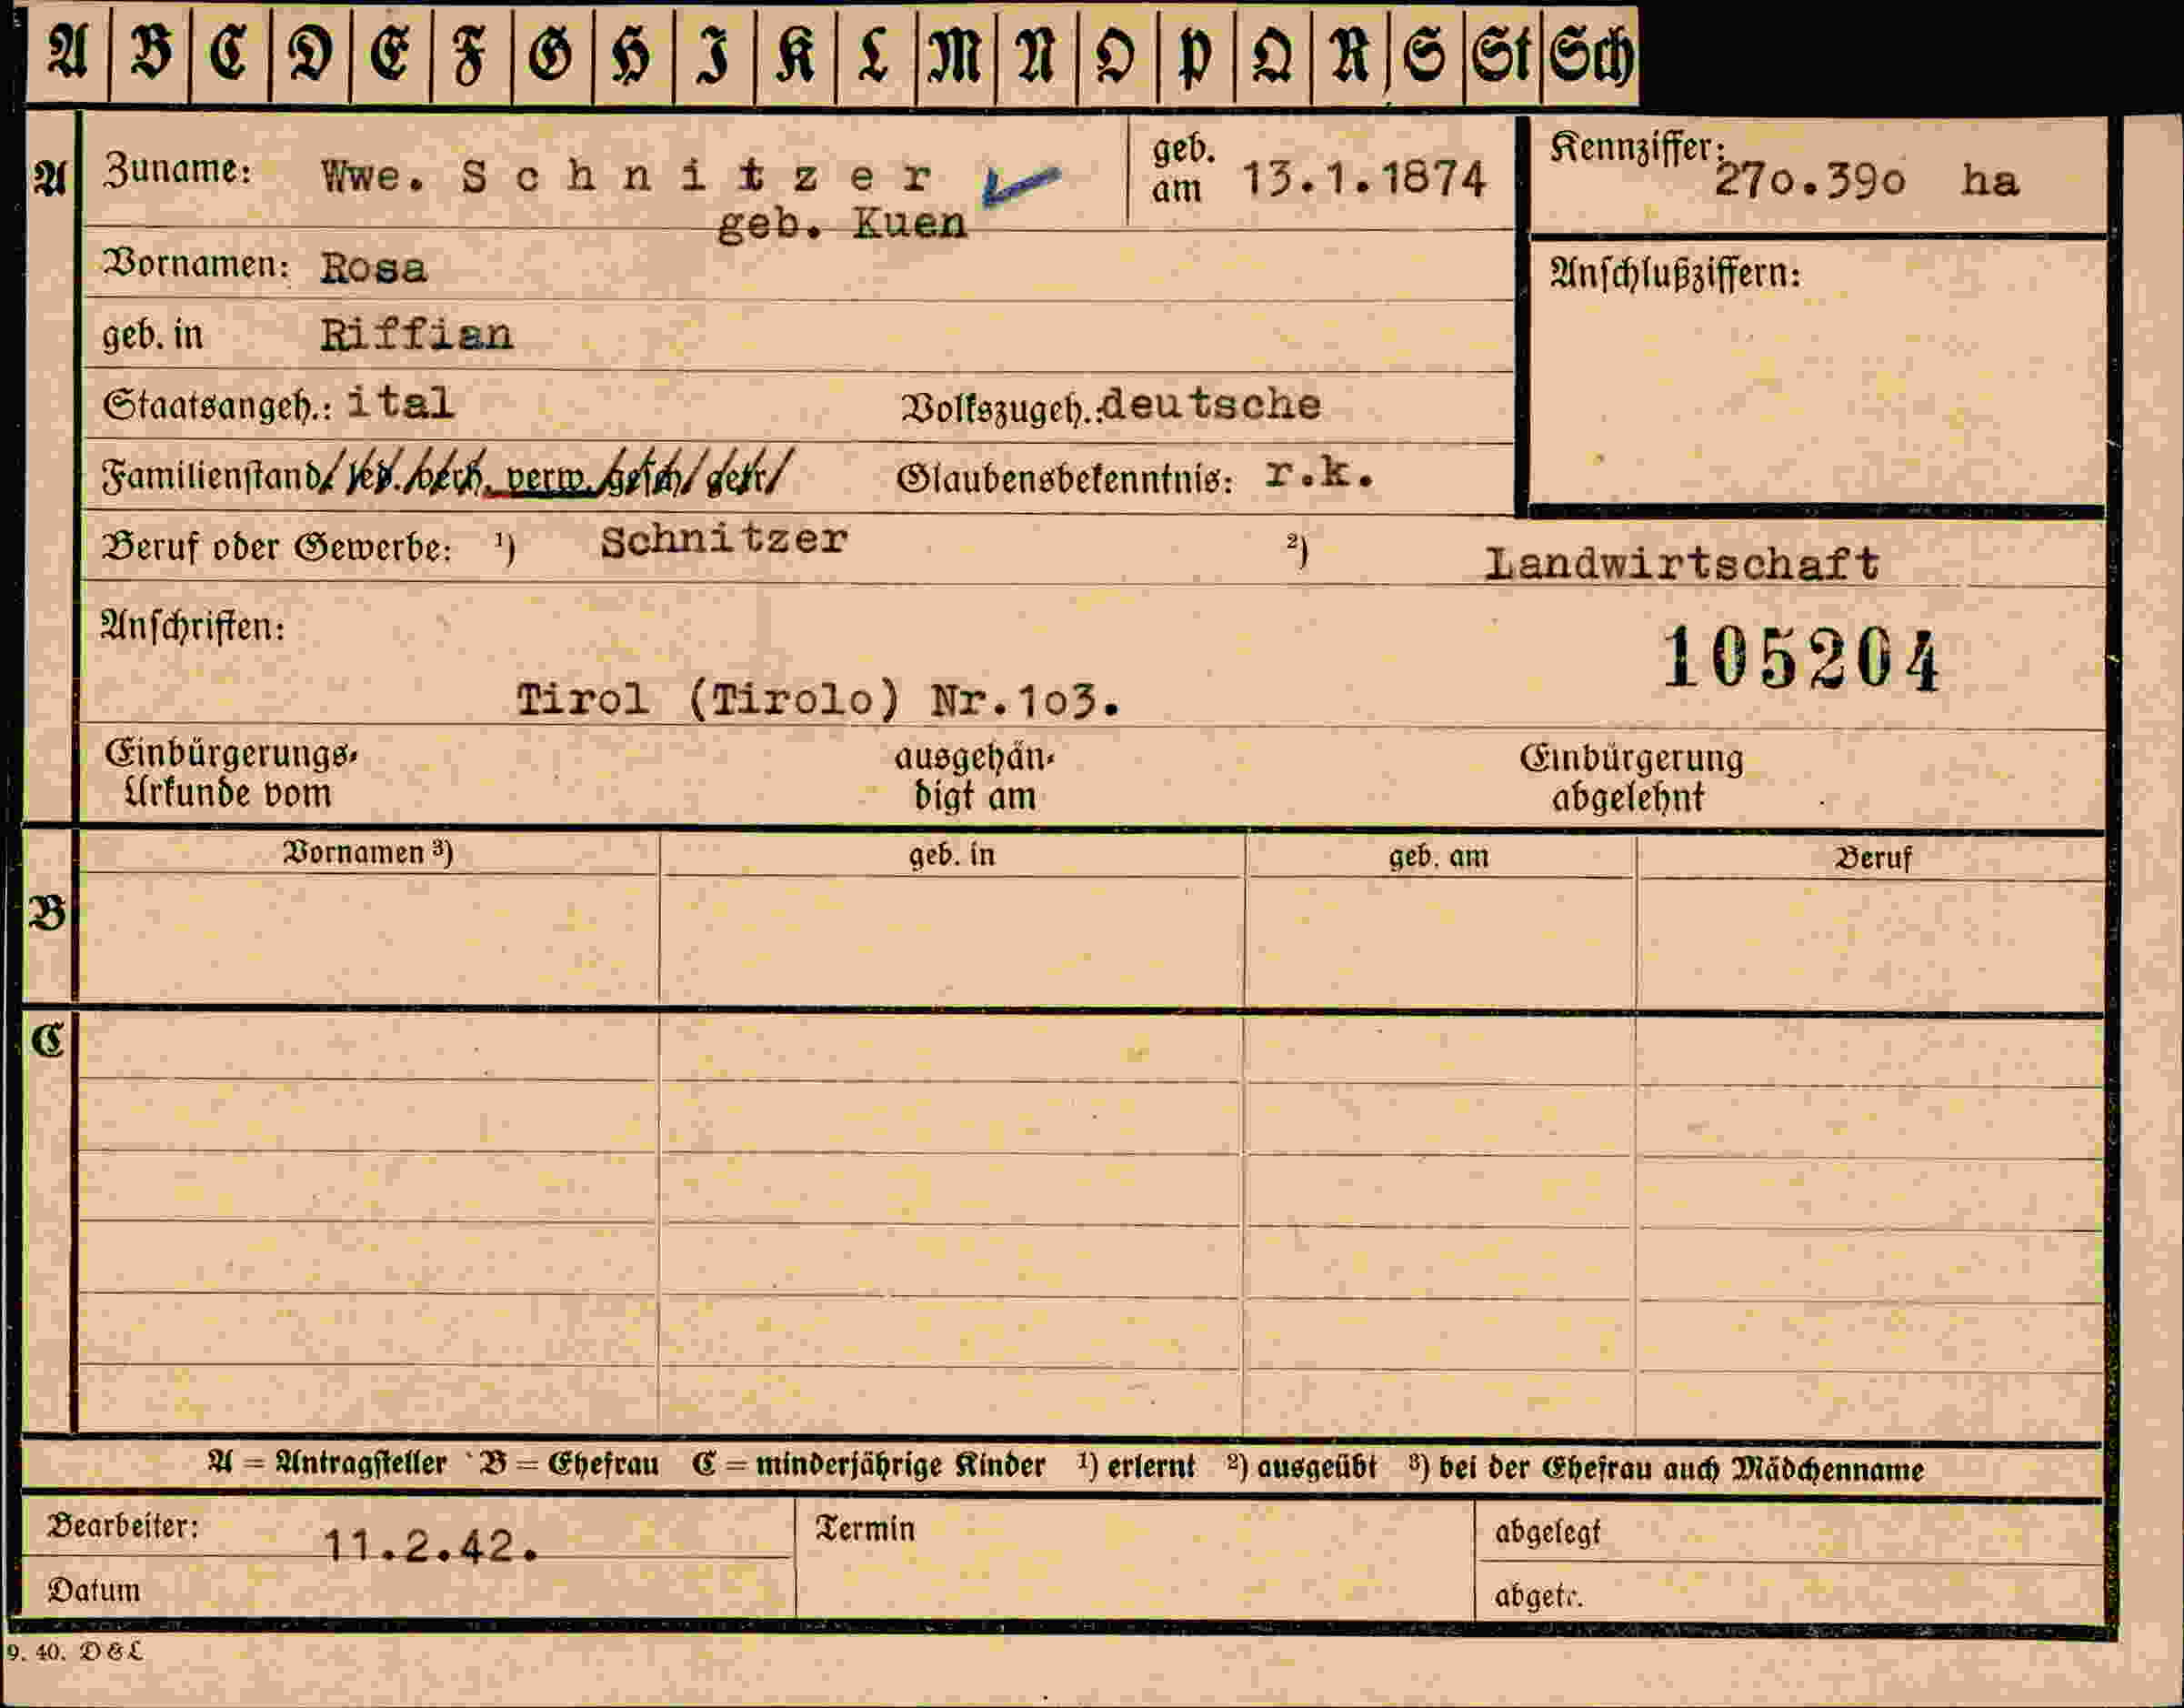 A B C D E F G H I K L M N O P Q R S St Sch
A Zuname: Wwe. S c h n i t z e r geb. am 13.1.1874 Kennziffer: 27o.39o ha
geb. Kuen
Vornamen: Rosa Anschlußziffern:
geb. in Riffian
Staatsangeh.: ital Volkszugeh.: deutsche
Familienstand/ led. verh. verw. gesch/ getr/ Glaubensbekenntnis: r.k.
Beruf oder Gewerbe: ¹) Schnitzer ²) Landwirtschaft
Anschriften: 105204
Tirol (Tirolo) Nr.1o3.
Einbürgerungs- ausgehän- Einbürgerung
Urkunde vom digt am abgelehnt
Vornamen ³) geb. in geb. am Beruf
B
C
A = Antragsteller B = Ehefrau C = minderjährige Kinder ¹) erlernt ²) ausgeübt ³) bei der Ehefrau auch Mädchenname
Bearbeiter: 11.2.42. Termin abgelegt
Datum abgetr.
9. 40. D & L